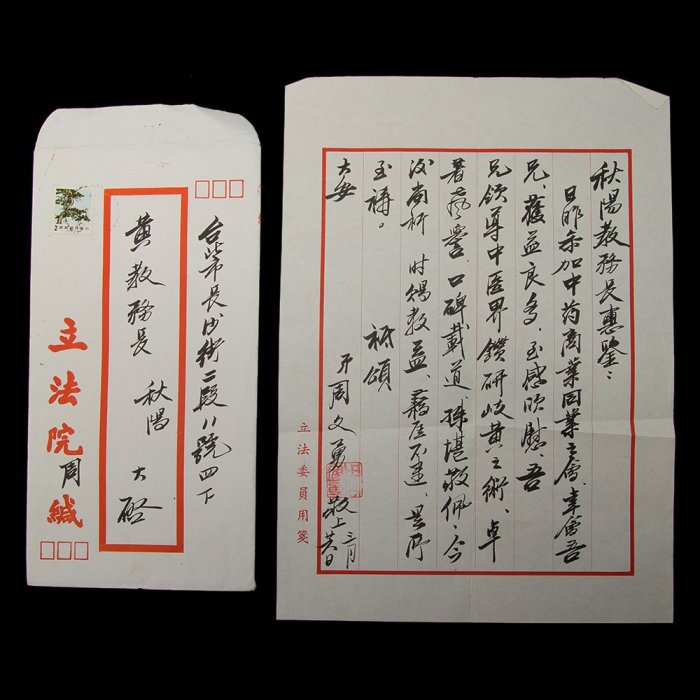 台北市長沙街二段八號四下
黃教務長 秋陽 大啓
立法院周緘
秋陽教務長惠鑒：
日昨參加中药商業同業公會，幸會吾
兄，獲益良多，至感欣慰吾
兄領導中医界鑽研岐黃之術，卓
著声譽，口碑載道，殊堪敬佩，今
後尚祈 時賜教益，藉匡不逮，是所
至禱。 祗頌
大安
弟周文勇敬上 三月
立法委員用箋